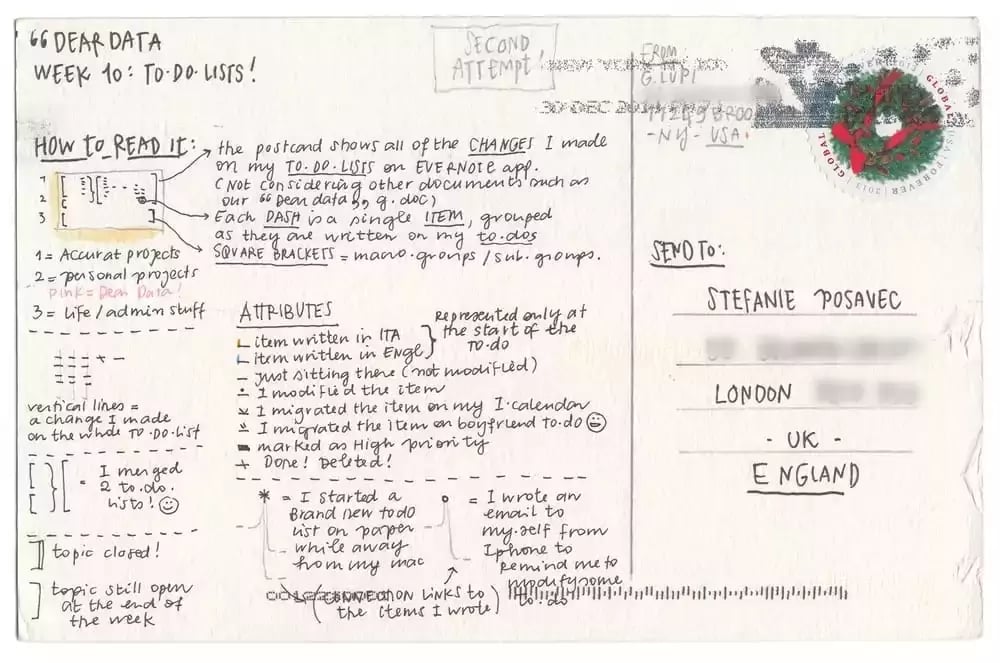 “ DEAR DATA
WEEK 10: TO.DO.LISTS!
SECOND
ATTEMPT!
FROM
G. LUPI
11249 BROO
-NY- USA.
30 DEC
GLOBAL
GLOBAL
FOREVER
2013
HOW TO READ IT:
the postcard shows all of the CHANGES I made
on my TO.DO.LISTS on EVERNOTE app.
(Not considering other documents such as
our “Dear data,, g.doc)
Each DASH is a single ITEM, grouped
as they are written on my to.dos
SQUARE BRACKETS = macro.groups / sub.groups.
1
2
3
1 = Accurat projects
2 = personal projects
pink = Dear Data!
3 = Life / admin stuff
vertical lines =
a change I made
on the whole TO.DO.LIST
= I merged
2 to.do.
lists!
topic closed!
topic still open
at the end of
the week
ATTRIBUTES
item written in ITA
item written in Engl
Represented only at
the start of the
TO.DO
just sitting there (not modified)
I modified the item
I migrated the item on my I.calendar
I migrated the item on boyfriend to.do
marked as High priority
+ Done! Deleted!
* = I started a
Brand new todo
list on paper
while away
from my mac
= I wrote an
email to
my.self from
Iphone to
remind me to
modify some
to.do
(CONNECTION LINKS to
the items I wrote)
SEND TO:
STEFANIE POSAVEC
LONDON
- UK -
ENGLAND